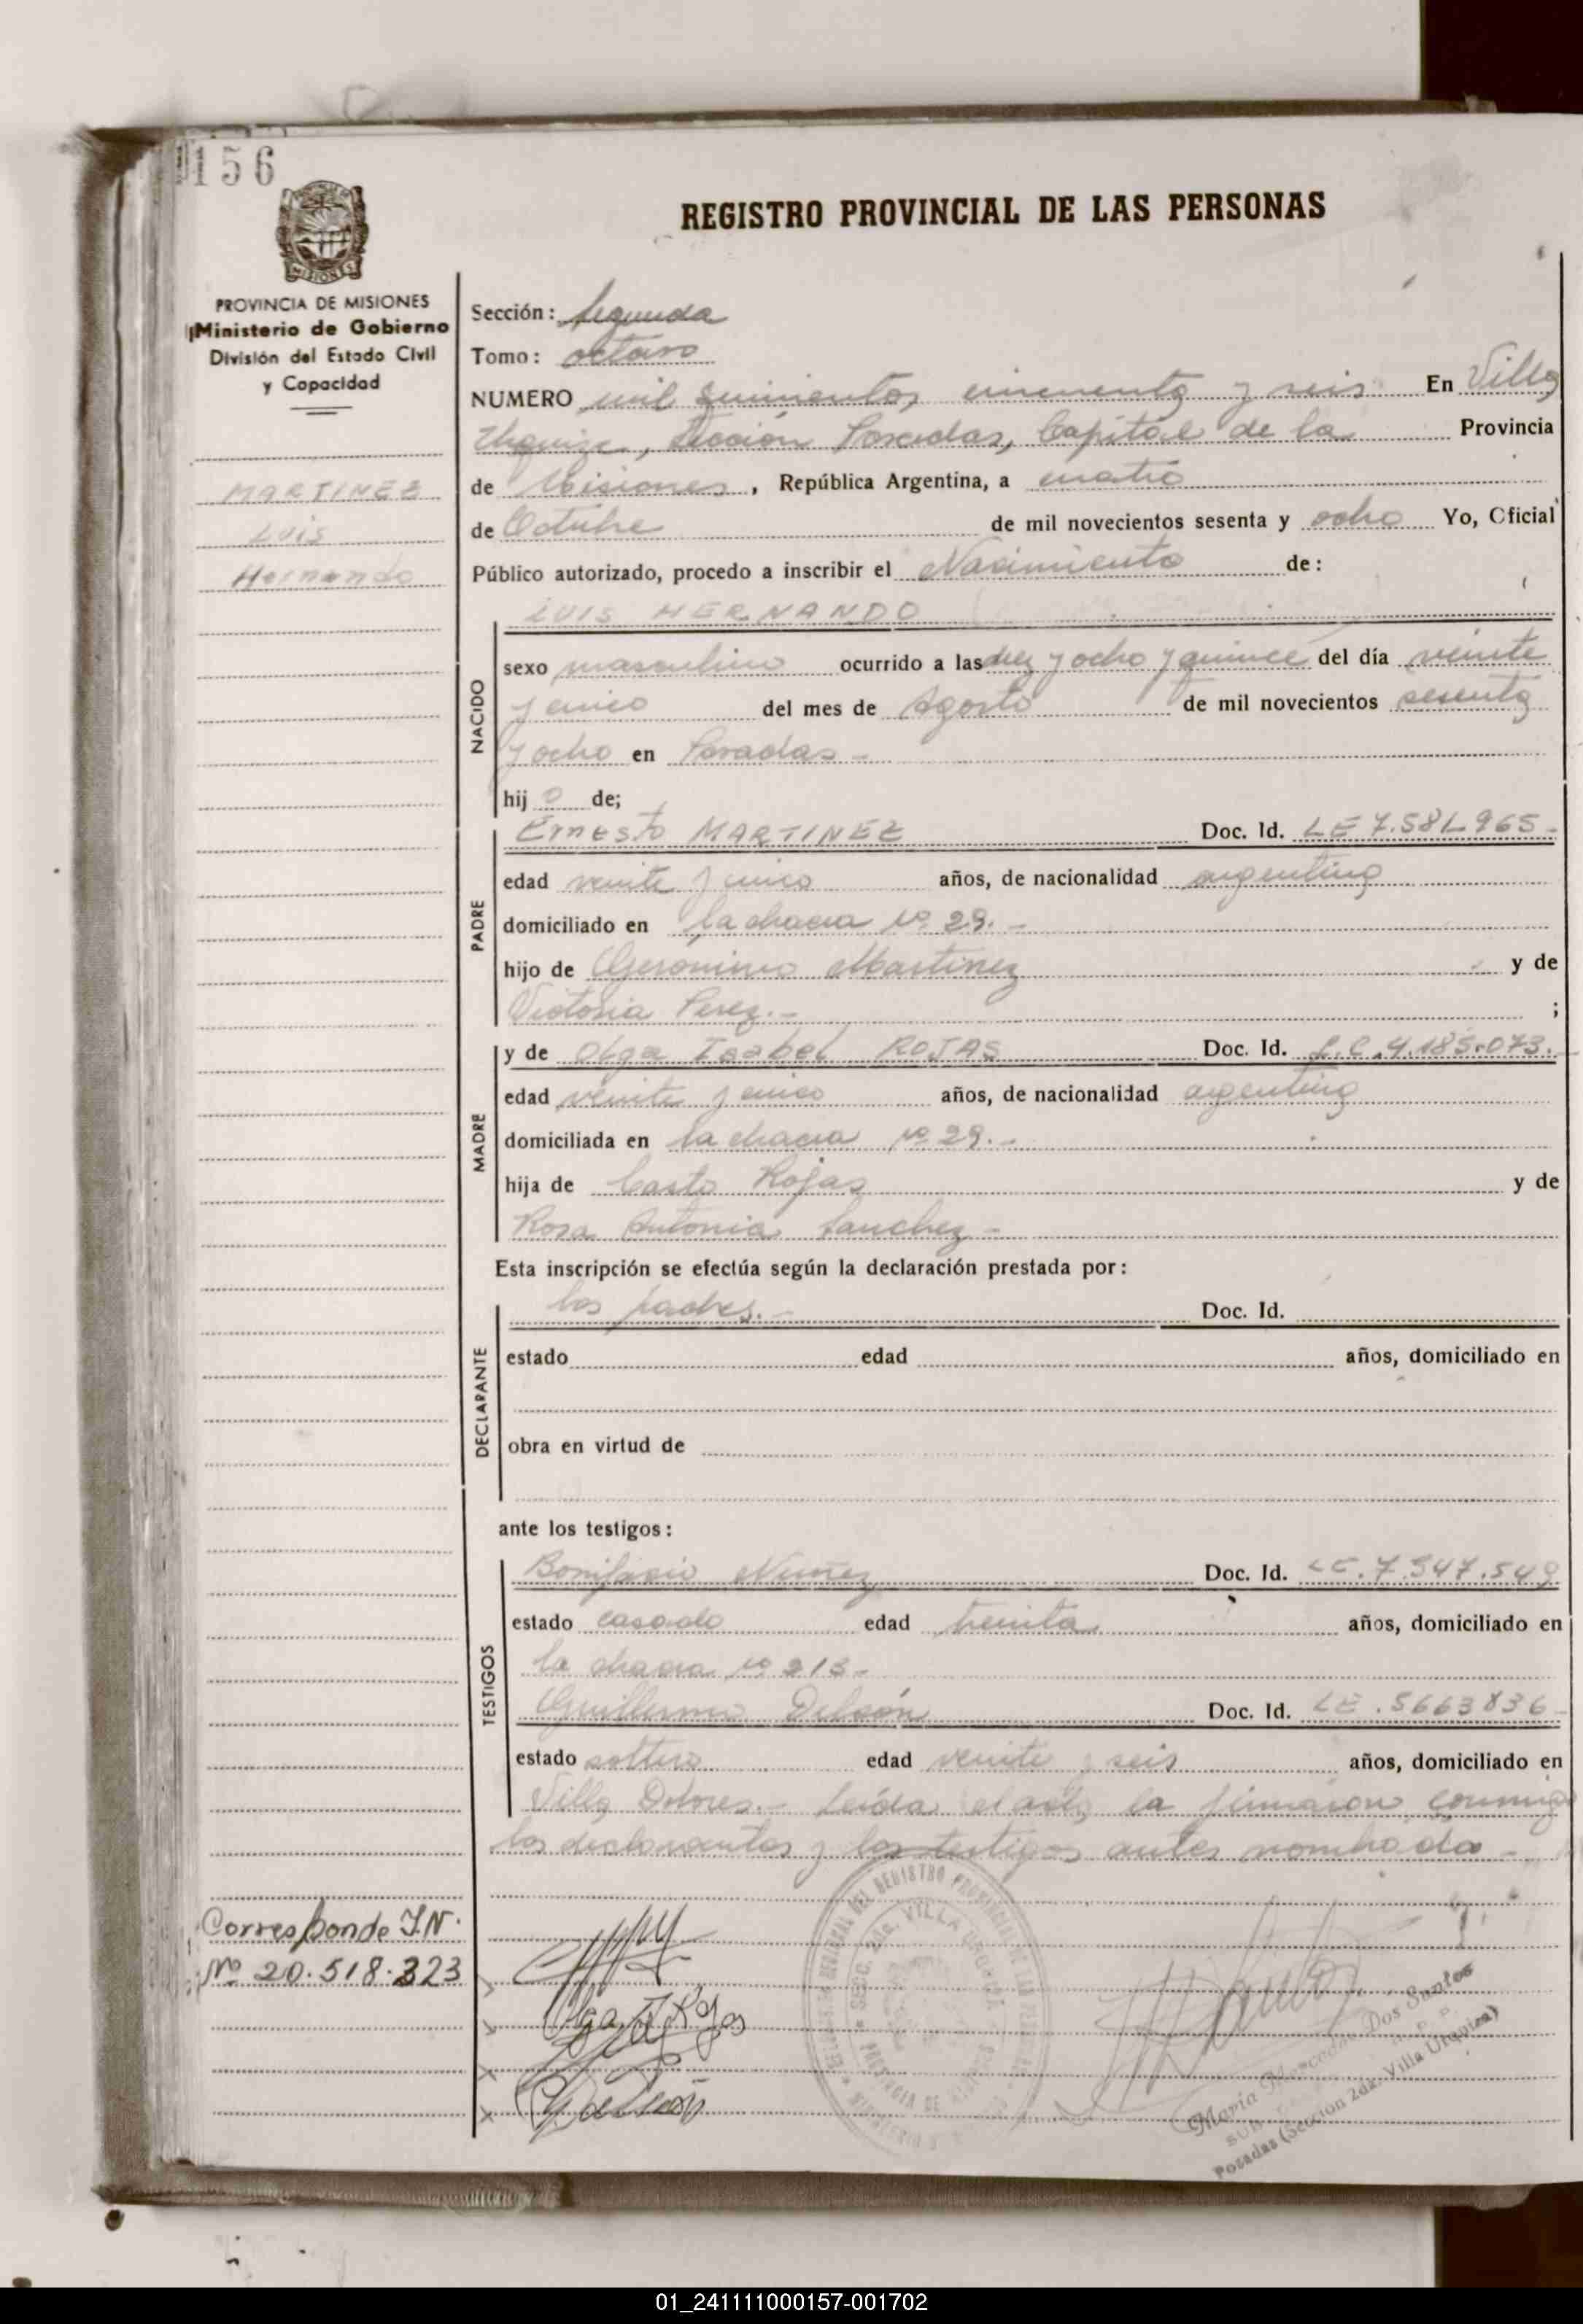 156
REGISTRO PROVINCIAL DE LAS PERSONAS
MISIONES
PROVINCIA DE MISIONES
Ministerio de Gobierno
División del Estado Civil
y Capacidad
MARTINEZ
Luis
Hernando
Sección: Segunda
Tomo: octavo
NUMERO mil quinientos cincuenta y seis En Villa
Urquiza, Sección Posadas, Capital de la Provincia
de Misiones, República Argentina, a cuatro
de Octubre de mil novecientos sesenta y ocho Yo, Oficial
Público autorizado, procedo a inscribir el Nacimiento de:
LUIS HERNANDO
NACIDO
sexo masculino ocurrido a las diez y ocho y quince del día veinte
y cinco del mes de Agosto de mil novecientos sesenta
y ocho en Posadas -
hijo de;
PADRE
Ernesto MARTINEZ Doc. Id. LE 7.581.965-
edad veinte y cinco años, de nacionalidad argentina
domiciliado en la chacra nº 29.-
hijo de Geronimo Martinez y de
Victoria Perez.- ;
MADRE
y de Olga Isabel ROJAS Doc. Id. L.C. 4.185.073.
edad veinte y cinco años, de nacionalidad argentina
domiciliada en la chacra nº 29.-
hija de Casto Rojas y de
Rosa Antonia Sanchez -
Esta inscripción se efectúa según la declaración prestada por:
DECLARANTE
los padres.- Doc. Id.
estado edad años, domiciliado en
obra en virtud de
ante los testigos:
TESTIGOS
Bonifacio Nuñez Doc. Id. LE. 7.547.549
estado casado edad treinta años, domiciliado en
la chacra nº 213-
Guillermo Doc. Id. LE. 5663836-
estado soltero edad veinte y seis años, domiciliado en
Villa Dolores.- Leída el acta, la firmaron conmigo
los declarantes y los testigos antes nombrados -
Corresponde I.N.
Nº 20.518.323
Olga I. Rojas
VILLA URQUIZA
María Mercedes Dos Santos
Posadas (Sección 2da. Villa Urquiza)
01_241111000157-001702